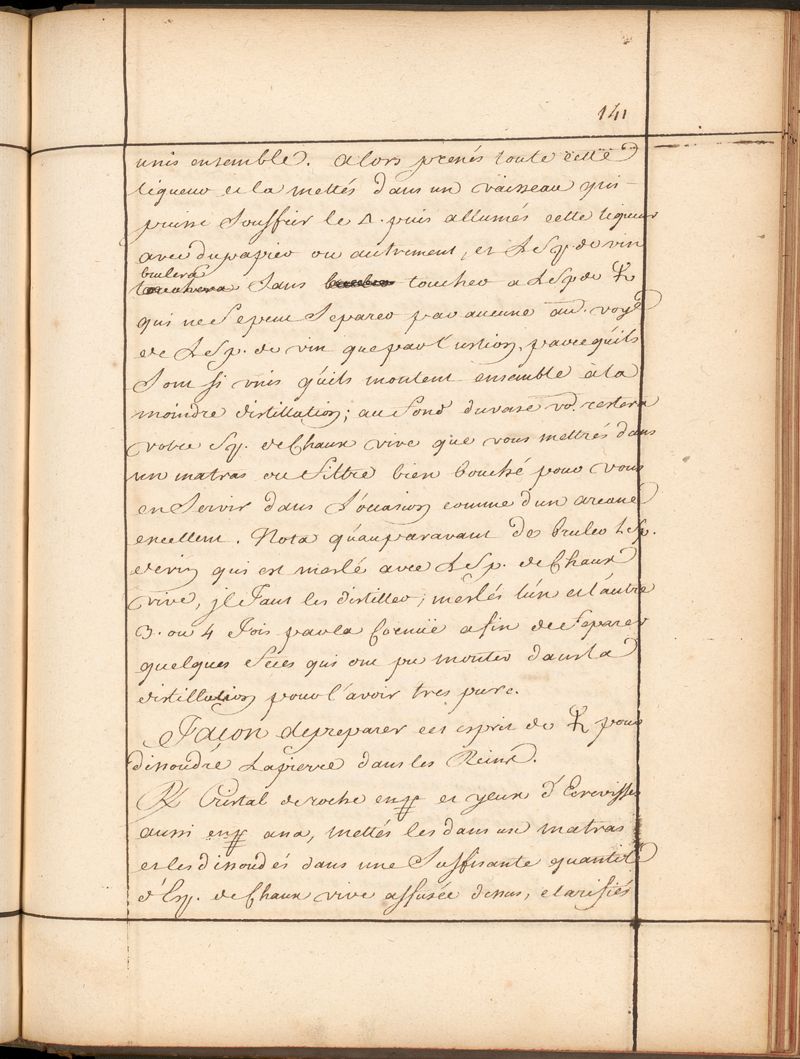 141
unis ensemble. Alors prenés toute cette
liqueur et la mettés dans un vaisseau qui
puisse Souffrir le △. puis allumés cette liqueur
avec du papier ou autrement, et L'Esp. de vin
brulera
Sans toucher a L'Esp de
qui ne Se peut Separer par aucune au. voye
de L'Esp. de vin que par l'ustion, parce qu'ils
Sont Si unis qu'ils montent ensemble à la
moindre distillation; au fond du vase vo. restera
votre Esp. de Chaux vive que vous mettrés dans
un matras ou filtre bien bouché pour vous
en Servir dans L'ocasion comme d'un arcane
excellent. Nota qu'auparavant de bruler L'Esp.
de vin qui est meslé avec L'Esp. de Chaux
vive, jl faut les distiller, meslés l'un et l'autre
3. ou 4 fois par la Cornüe afin de Separer
quelques feces qui ont pu monter dans la
distillation pour l'avoir tres pure.
Façon de preparer cet esprit de pour
dissoudre La pierre dans les Reins.
℞ Cristal de roche en et yeux d'Ecrevisses
aussi en ana, mettés les dans un matras
et les dissoudés dans une Suffisante quantité
d'Esp. de Chaux vive affusée dessus, clarifiés